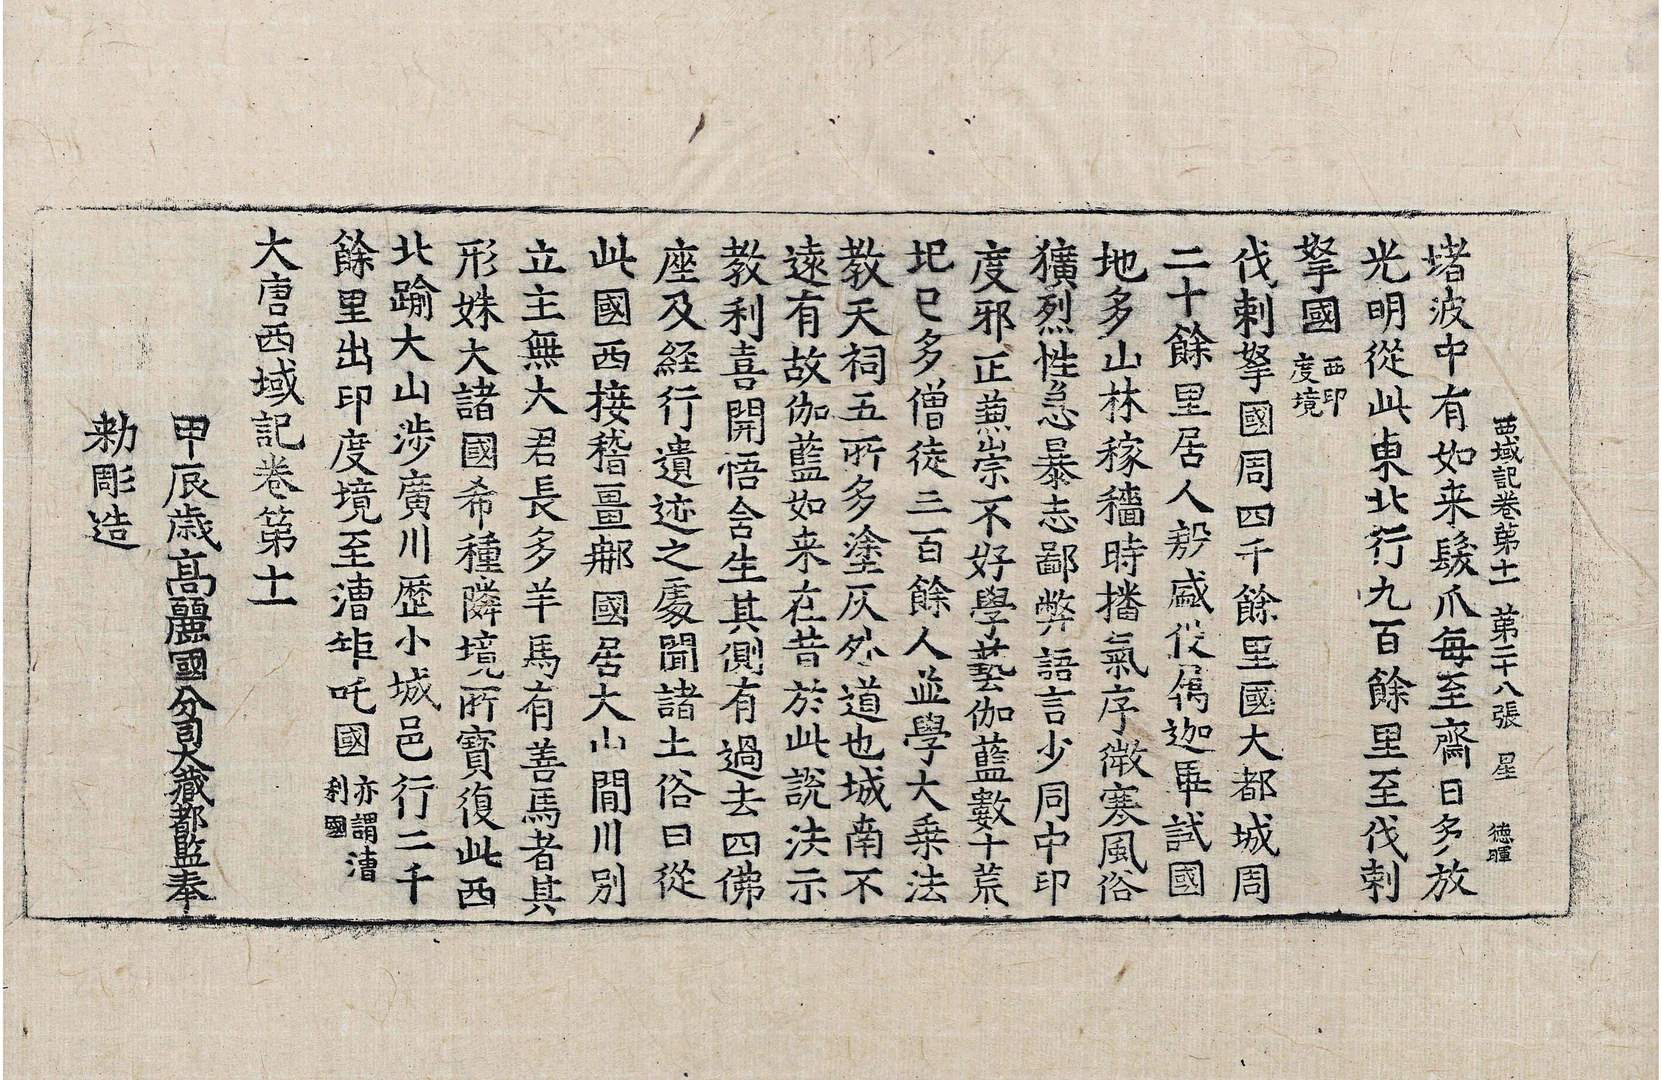 西域記卷第十一 第二十八張 星 德暉
堵波中有如来髮爪每至齋日多放
光明從此東北行九百餘里至伐剌
拏國西印度境
伐剌拏國周四千餘里國大都城周
二十餘里居人殷盛役属迦畢試國
地多山林稼穡時播氣序微寒風俗
獷烈性急暴志鄙弊語言少同中印
度邪正兼崇不好學藝伽藍數十荒
圮已多僧徒三百餘人並學大乗法
教天祠五所多塗灰外道也城南不
遠有故伽藍如来在昔於此說法示
教利喜開悟含生其側有過去四佛
座及経行遺迹之處聞諸土俗曰從
此國西接稽畺那國居大山間川別
立主無大君長多羊馬有善馬者其
形姝大諸國希種隣境所寶復此西
北踰大山涉廣川歴小城邑行二千
餘里出印度境至漕矩吒國亦謂漕利國
大唐西域記卷第十一
甲辰歳高麗國分司大藏都監奉
勅彫造